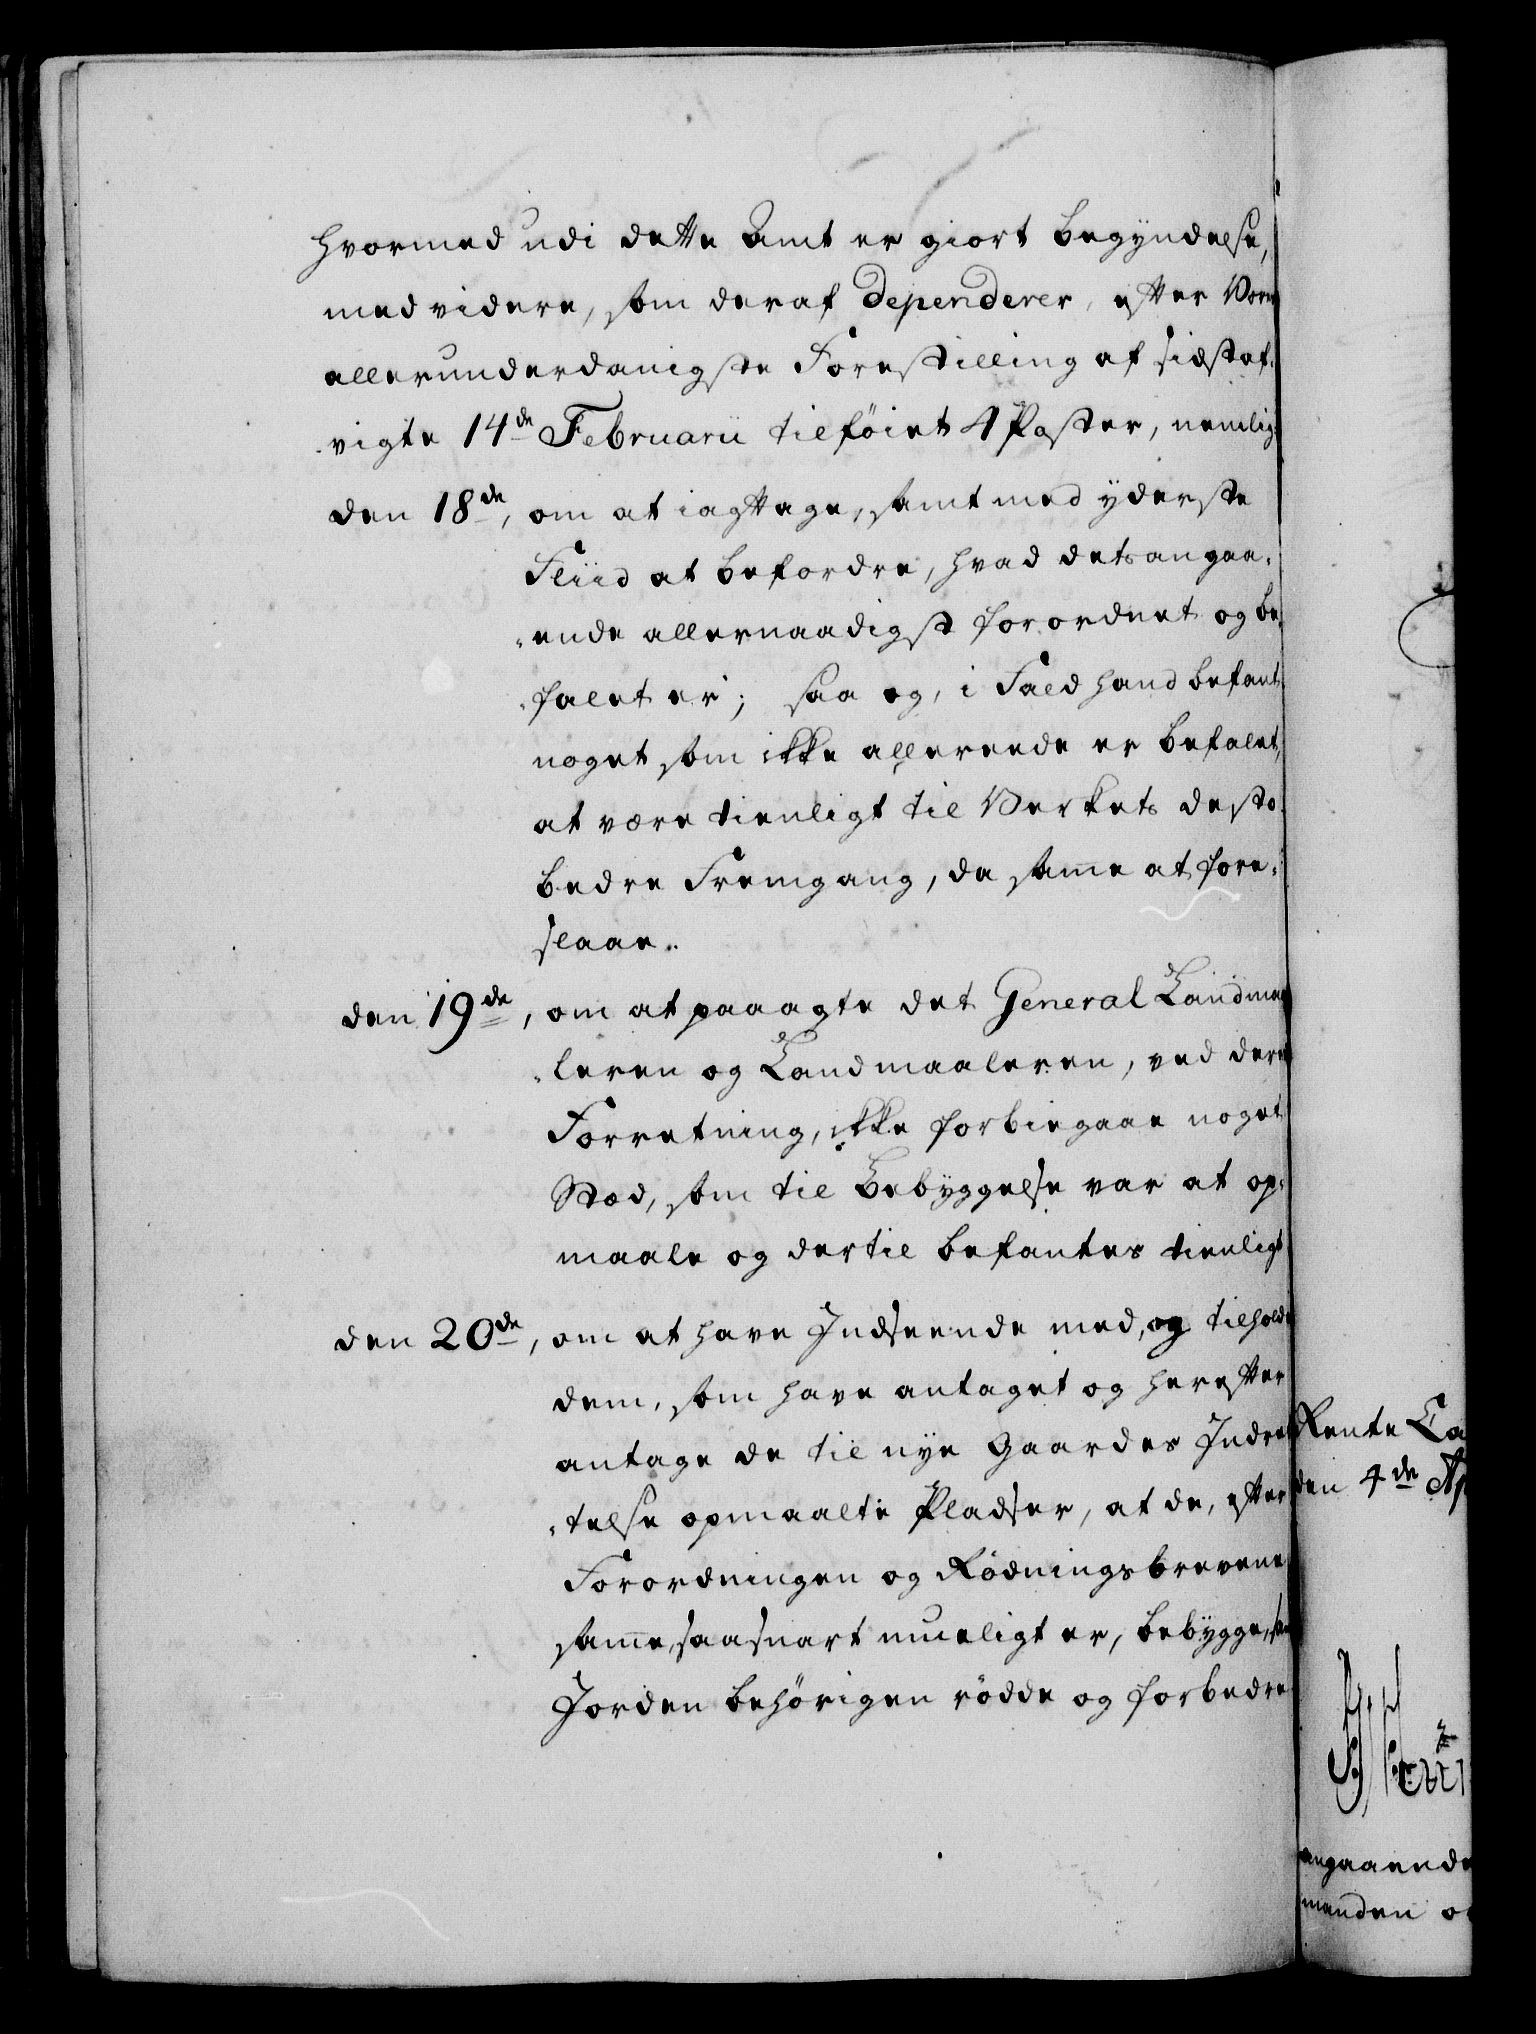 hvormed udi dette Amt er giort begyndelse,
med videre, som deraf dependerer, efter Vores
allerunderdanigste Forestilling af sidstaf-
vigte 14de Februarii tilføiet 4 Poster, nemlig:
den 18de, om at iagttage, samt med yderste
Fliid at befordre, hvad detsangaa-
ende allernaadigst forordnet og be-
falet er; saa og, i Fald hand befant
noget som ikke allereede er befalet,
at være tienligt til Verkets desto
bedre Fremgang, da samme at fore-
slaae.
den 19de, om at paaagte det General Landmaa-
leren og Landmaaleren, ved deres
Forretning, ikke forbiegaae noget
Stæd, som til Bebyggelse var at op-
maale og dertil befantes tienligt
den 20de, om at have Indseende med, og tilholde
dem, som have antaget og herefter
antage de til nye Gaardes Indret-
telse opmaalte Pladser, at de, efter
Forordningen og Rødningsbrevene
samme, saasnart mueligt er, bebygge, samt
Jorden behørigen rødde og forbedre
Rente Ca
den 4de Ap
angaaende
manden o